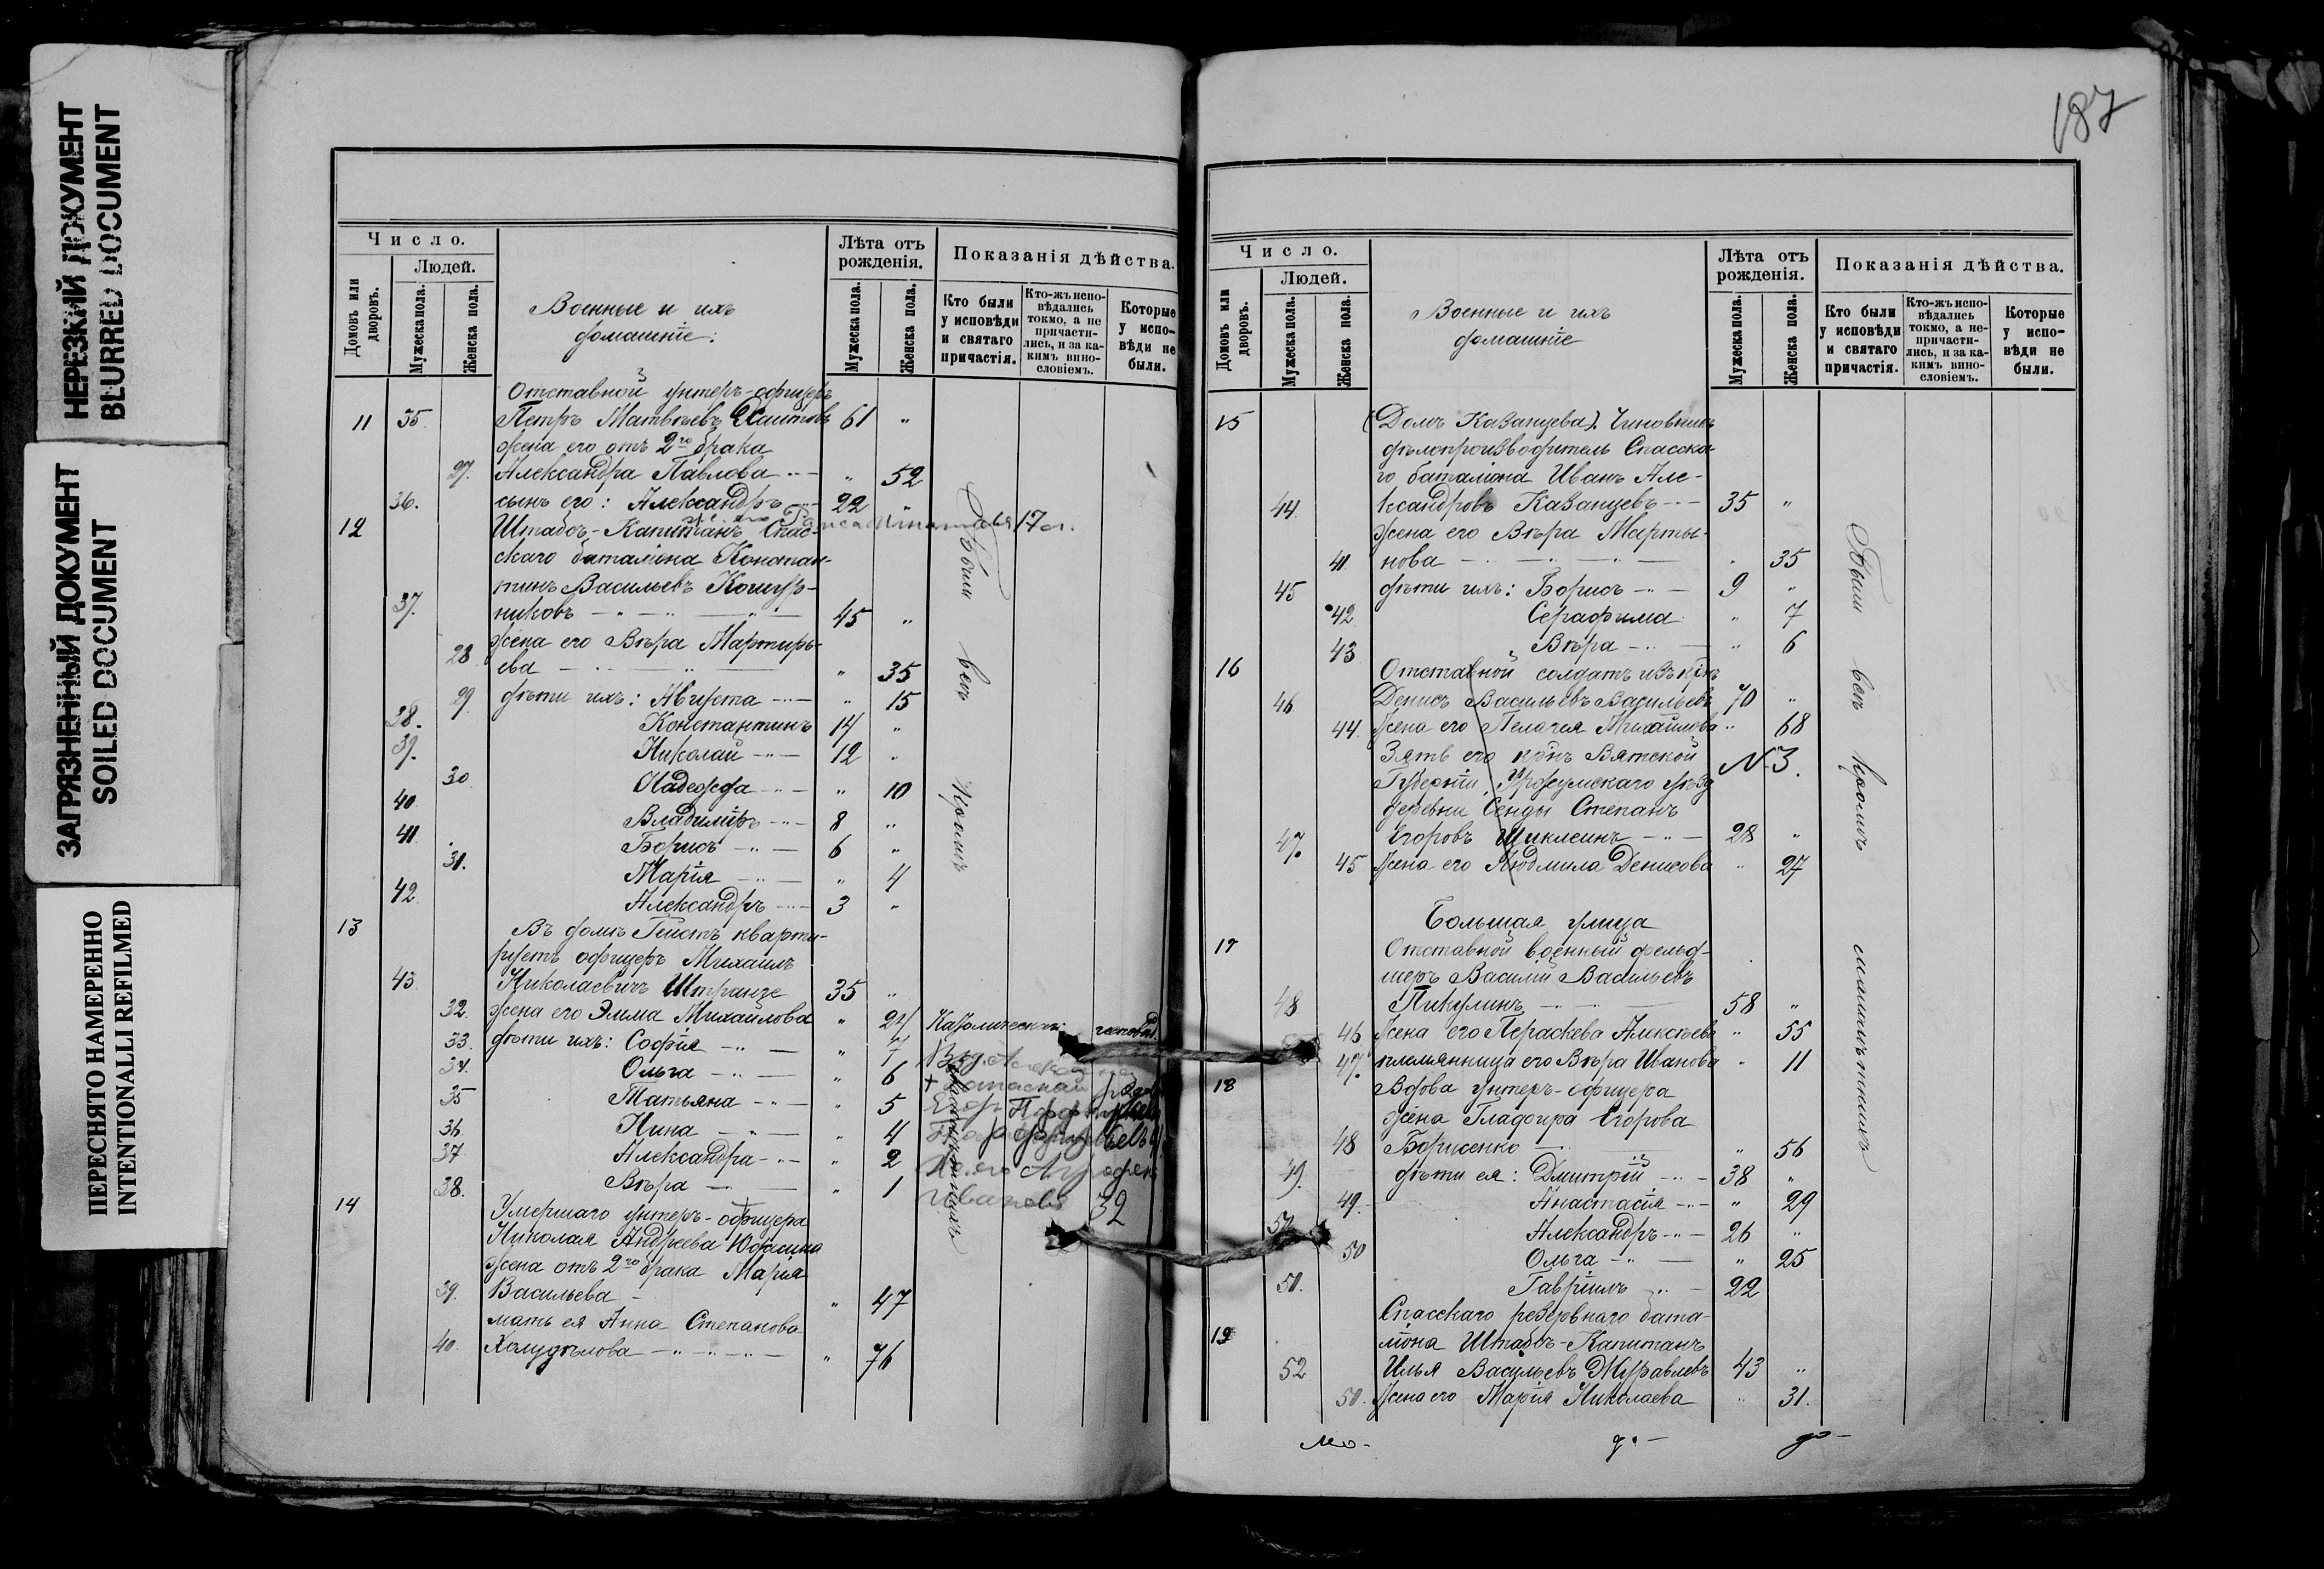 НЕРЕЗКИЙ ДОКУМЕНТ
BLURRED DOCUMENT
ЗАГРЯЗНЕННЫЙ ДОКУМЕНТ
SOILED DOCUMENT
ПЕРЕСНЯТО НАМЕРЕННО
INTENTIONALLI REFILMED
Число.
Домовъ или дворовъ.
Людей.
Мужеска пола.
Женска пола.
Военные и ихъ
домашніе:
Лѣта отъ рожденія.
Мужеска пола.
Женска пола.
Показанія дѣйства.
Кто были у исповѣди и святаго причастія.
Кто-жъ исповѣдались токмо, а не причастились, и за какимъ винословіемъ.
Которые у исповѣди не были.
Отставной унтеръ-офицеръ
11 35. Петръ Матвѣевъ 61 "
жена его отъ 2го брака
27. Александра Павлова " 52
36. сынъ его: Александръ 22 "
17 л.
12 Штабсъ-Капитанъ Спас-
скаго баталіона Констан-
тинъ Васильевъ
37. никовъ 45 "
жена его Вѣра Мартирь-
28 ева " 35
29. дѣти ихъ: Августа " 15
38. Константинъ 14 "
39. Николай 12 "
30 Надежда " 10
40. Владиміръ 8 "
41. Борисъ 6 "
31. Марія " 4
42. Александръ 3 "
Были всѣ
13 Въ домѣ Гейстъ кварти-
руетъ офицеръ Михаилъ
43. Николаевичъ Штранге 35 "
32. жена его Эмма Михайлова " 24
33. дѣти ихъ: Софія " 7
34. Ольга " 6
35 Татьяна " 5
36. Нина " 4
37. Александра " 2
38. Вѣра " 1
Иванова 32
14 Умершаго унтеръ-офицера
Николая Андреева Юдасина
жена отъ 2го брака Марія
39. Васильева " 47
мать ея Анна Степанова
40. Холудѣлова " 76
187
Число.
Домовъ или дворовъ.
Людей.
Мужеска пола.
Женска пола.
Военные и ихъ
домашніе
Лѣта отъ рожденія.
Мужеска пола.
Женска пола.
Показанія дѣйства.
Кто были у исповѣди и святаго причастія.
Кто-жъ исповѣдались токмо, а не-причастились, и за какимъ винословіемъ.
Которые у исповѣди не были.
15 (Домъ Казанцева). Чиновникъ
дѣлопроизводитель Спасска-
го баталіона Иванъ Але-
44. ксандровъ Казанцевъ 35 "
жена его Вѣра Марты-
41. нова " 35
45 дѣти ихъ: Борисъ 9 "
42 Серафима " 7
43 Вѣра " 6
16 Отставной солдатъ изъ крѣнъ
46 Денисъ Васильевъ Васильевъ 70 "
44. Жена его Пелагея Михайлова " 68
Зять его крѣнъ Вятской
Губерніи, Уржумскаго уѣзд N 3.
деревни Сенды Степанъ
47. Егоровъ Шиклеинъ 28 "
45 Жена его Людмила Денисова " 27
Были всѣ
Большая улица
17 Отставной военный фельд-
шеръ Василій Васильевъ
48 Пикулинъ 58 "
46 Жена его Параскева Алексѣева " 55
47. племянница его Вѣра Иванова " 11
18 Вдова унтеръ-офицера
жена Гладсира Егорова
48 Борисенко " 56
49. дѣти ея: Дмитрій 38 "
49. Анастасія " 29
50. Александръ 26 "
50 Ольга " 25
51. Гавріилъ 22
Спасскаго резервнаго бата-
19 ліона Штабсъ-Капитанъ
52 Илья Васильевъ Журавлевъ 43 "
50. Жена его Марія Николаева " 31.